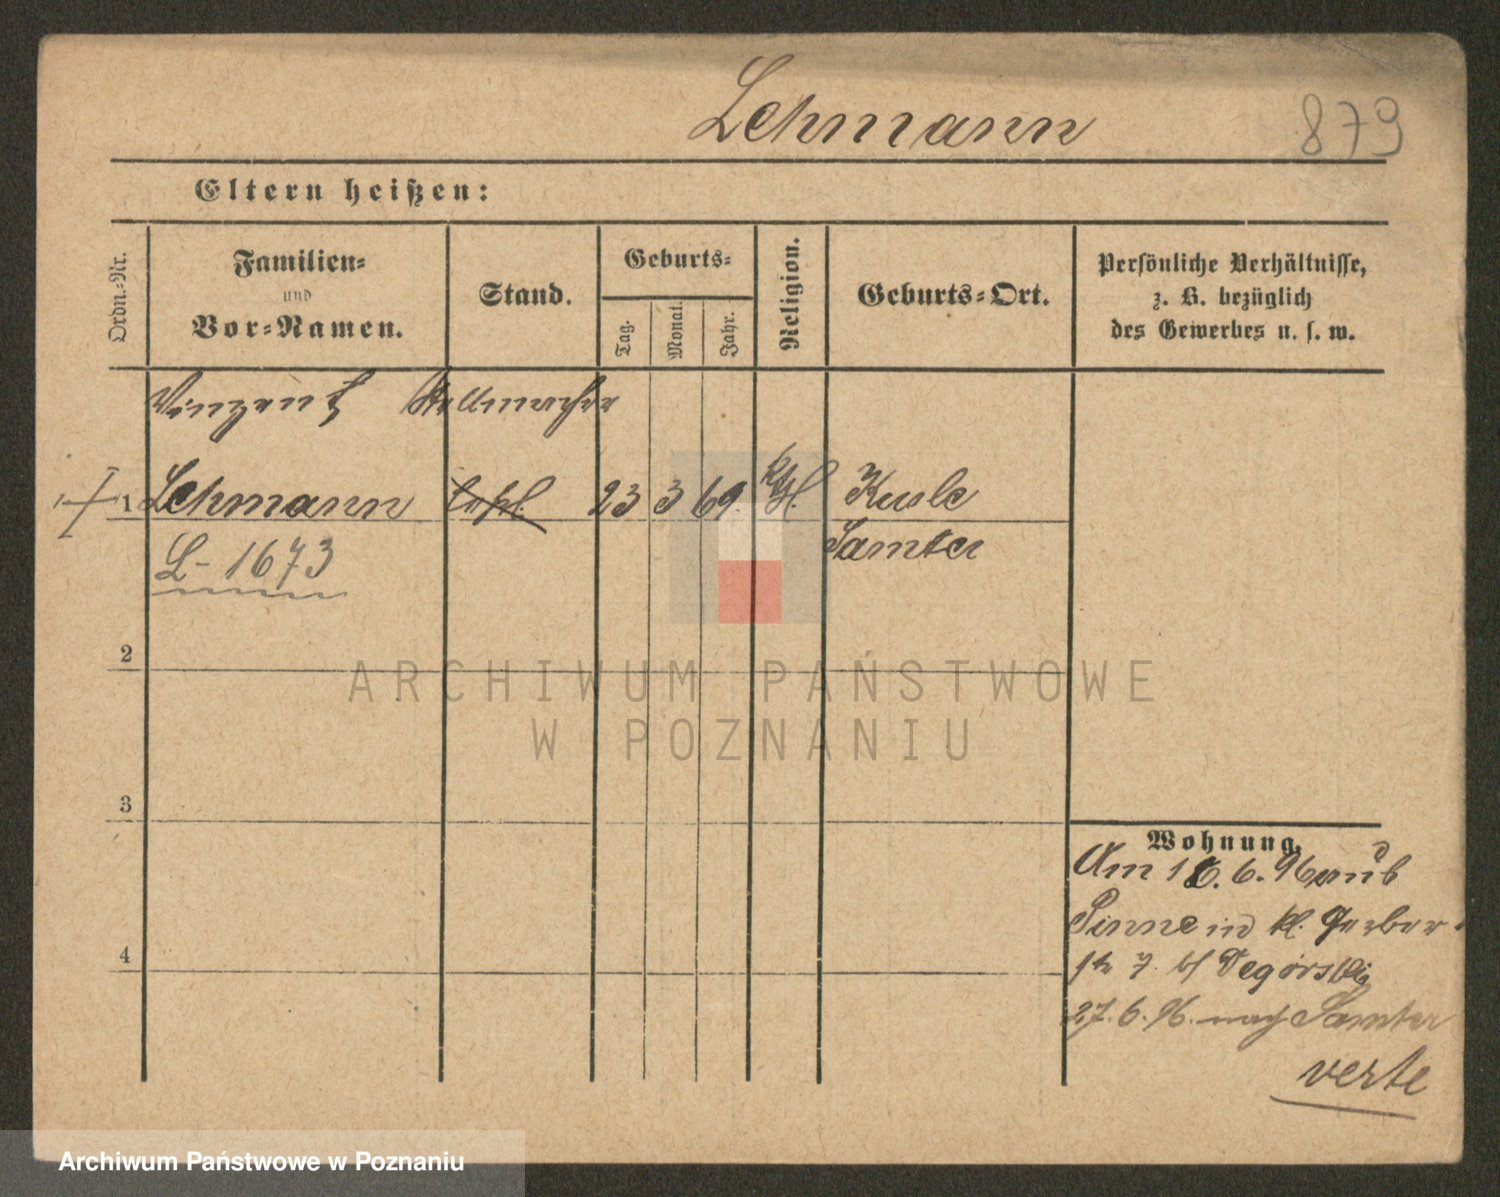 Lehmann 879
Eltern heißen:
Ordn.-Nr.
Familien-
und
Vor-Namen.
Stand.
Geburts-
Tag.
Monat.
Jahr.
Religion.
Geburts-Ort.
Persönliche Verhältnisse,
z. B. bezüglich
des Gewerbes u. s. w.
Vinzent Stellmacher
1 Lehmann 23 3 69. Kth. Kusle
L-1673 Samter
2
ARCHIWUM PAŃSTWOWE
W POZNANIU
3
4
Wohnung.
Am 16.6.96 aus
Pinne in kl. Gerber-
27.6.96. nach Samter
verte
Archiwum Państwowe w Poznaniu